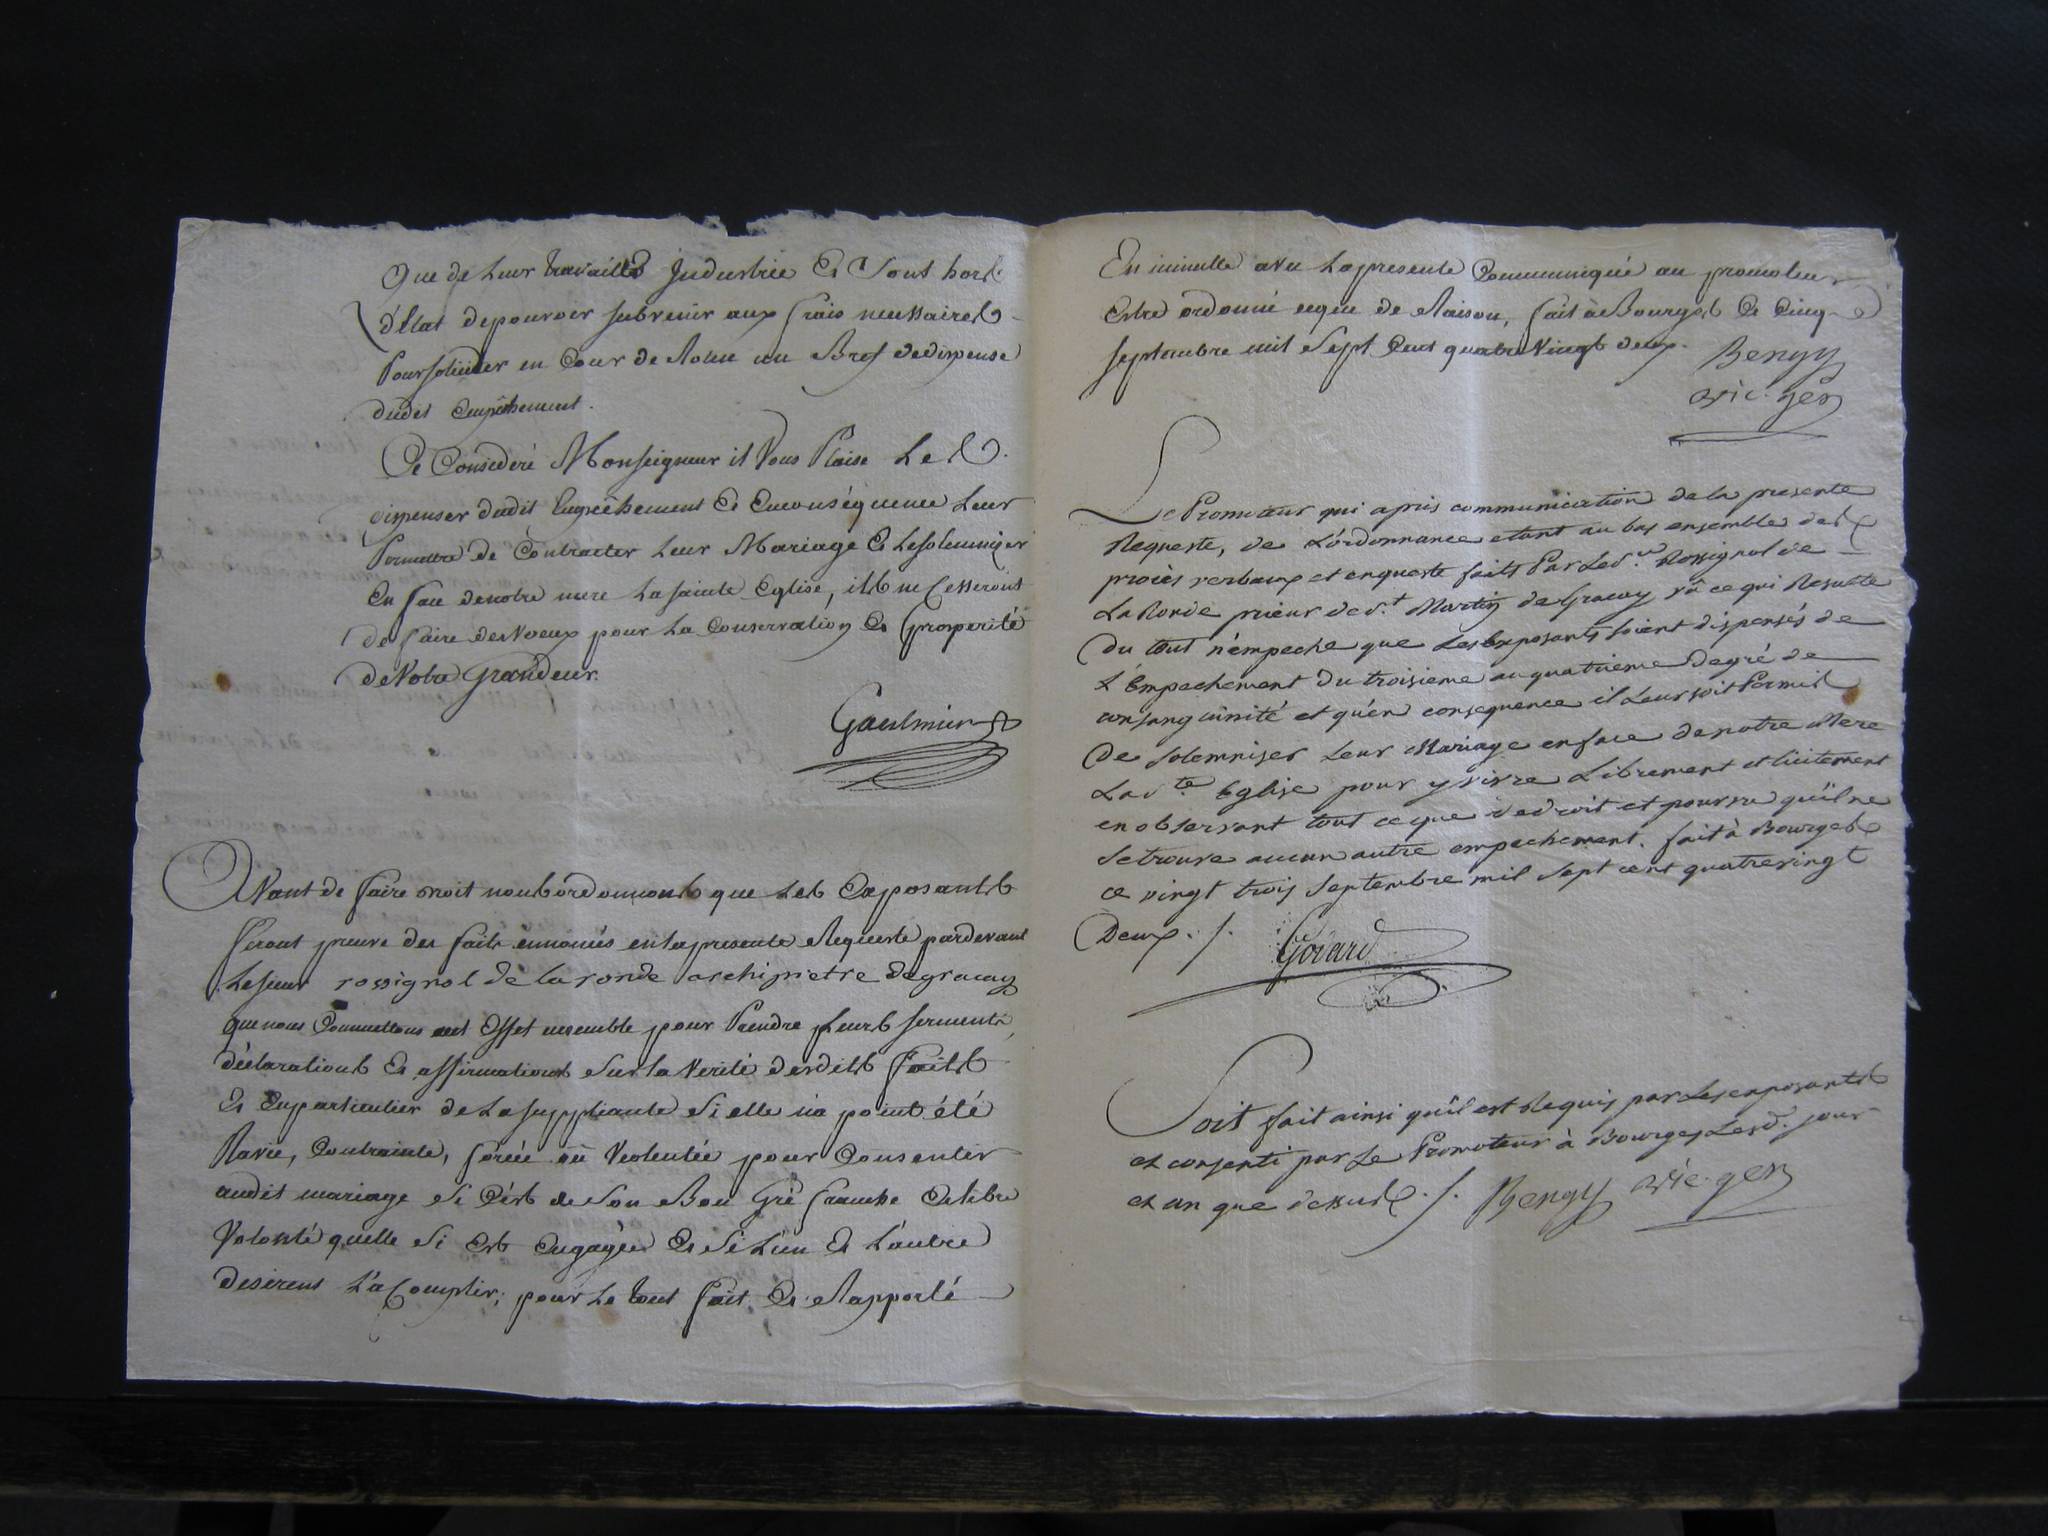 que de leur travail & Industrie et sont hors
d'état de pouvoir subvenir aux frais necessaires
Pour soliciter en Cour de Rome un Bref de dispense
dudit empêchement.
Ce Considéré Monseigneur il Vous Plaise Les
dispenser dudit Empêchement et en conséquence Leur
Permettre de Contracter Leur Mariage et le solemniser
en face de notre mere La sainte Eglise, ils ne Cesseront
de faire des Voeux pour La Conservation et prosperité
de Votre Grandeur.
Gaulmier
Avant de faire droit nous ordonnons que Les Exposants
feront preuve des faits énnoncés en la presente Requeste pardevant
Le sieur rossignol de la ronde archipretre de graçay
que nous Commettons à cet Effet ensemble pour Prendre Leurs serments,
déclarations et affirmations sur la Verité desdits faits
et en particulier de La suppliante si elle n'a point été
Ravie, Contrainte, forcée où Violentée pour Consentir
audit mariage si C'est de son Bon Gré franche et libre
Volonté quelle si est engagée et si L'un et L'autre
desirent L'acComplir; pour Le tout fait et Rapporté
En minutte avec La presente Communiqué au promoteur
Estre ordonné ce que de Raison, fait à Bourges Ce Cinq
septembre mil Sept Cent quatre Vingt deux. Bengy
Vic. gen
Le Promoteur qui apris communication de la presente
Requeste, de L'ordonnance etant au bas ensemble des
procès verbaux et enqueste faits Par Le Sr. Rossignol de
La Ronde prieur de St. Martin de Graçay vû ce qui Resulte
du tout n'empeche que Les Exposants soient dispensés de
L'empechement du troisieme au quatrieme degré de
consanguinité et qu'en consequence il Leur soit Permis
de solemniser Leur Mariage en face de notre Mere
La Ste. Eglise pour y vivre Librement et licitement
en observant tout ce que de droit et pourvu qu'il ne
se trouve aucun autre empechement. fait à Bourges
ce vingt trois Septembre mil sept cent quatrevingt
Deux. /. Govard
Soit fait ainsi qu'il est Requis par Les exposants
et consenti par Le Promoteur à Bourges Lesd. jour
et an que dessus. /. Bengy Vic. gen